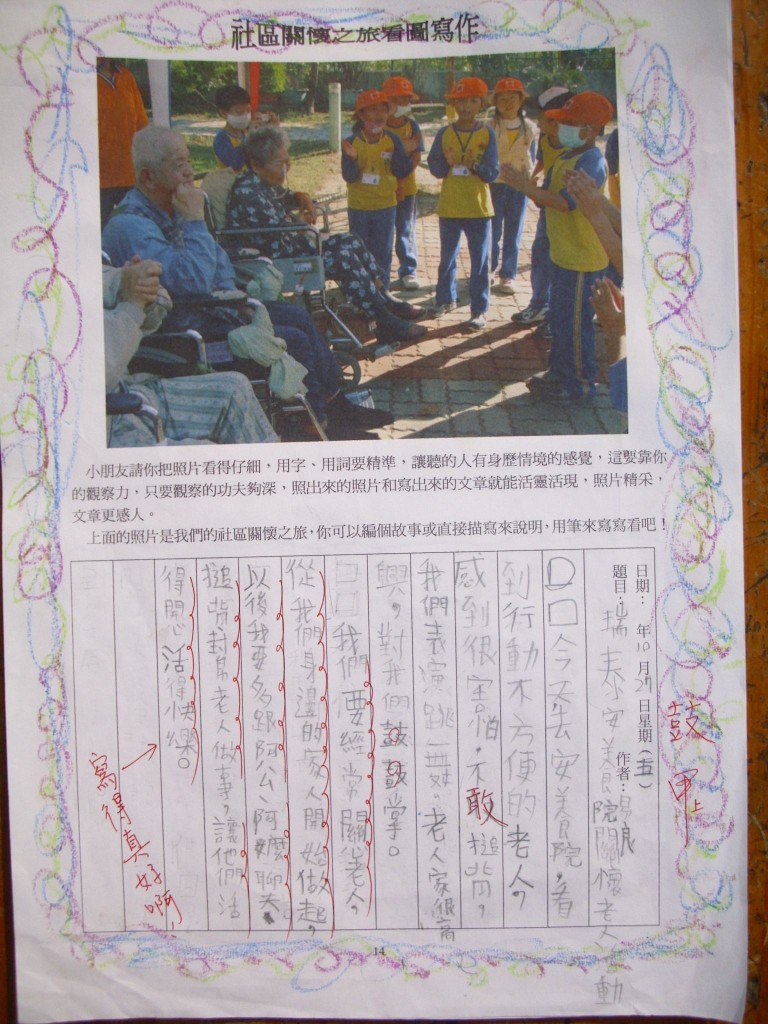 社區關懷之旅看圖寫作
小朋友請你把照片看得仔細，用字、用詞要精準，讓聽的人有身歷情境的感覺，這要靠你
的觀察力，只要觀察的功夫夠深，照出來的照片和寫出來的文章就能活靈活現，照片精采，
文章更感人。
上面的照片是我們的社區關懷之旅，你可以編個故事或直接描寫來說明，用筆來寫寫看吧！
鼓 甲上
日期： 年10月27日星期（五） 作者：
題目：瑞泰安養院關懷老人活動
口口今天去安養院，看
到行動不方便的老人，
感到很害怕，不敢搥背，
我們表演跳舞。老人家很高
興，對我們鼓鼓掌。
口口我們要經常關心老人，
從我們身邊的家人開始做起，
以後我要多跟阿公、阿嬤聊天，
搥背封幫老人做事，讓他們活
得開心活得快樂。
寫得真好啊！
14